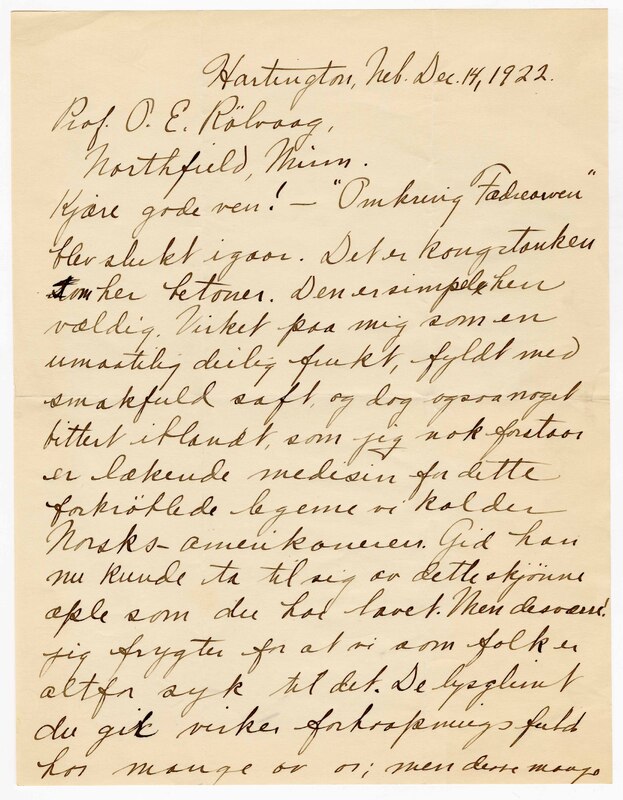 Hartington, Neb. Dec. 14, 1922.
Prof. O. E. Rölvaag,
Northfield, Minn.
Kjære gode ven! – "Omkring Fædrearven"
blev slukt igaar. Det er kongstanken
som her betoner. Den er simpelthen
vældig. Virket paa mig som en
umaatelig deilig frukt, fyldt med
smakfuld saft, og dog ogsaa noget
bittert iblandt, som jeg nok forstaar
er lækende medesin for dette
forkrøblede legeme vi kalder
Norsk-amerikaneren. Gid han
nu kunde ta til sig av dette skjønne
æple som du har lavet. Men desværre!
jeg frygter for at vi som folk er
altfor syk til det. De lysglimt
du gik virker forhaapningsfuld
hos mange av os; men disse mange